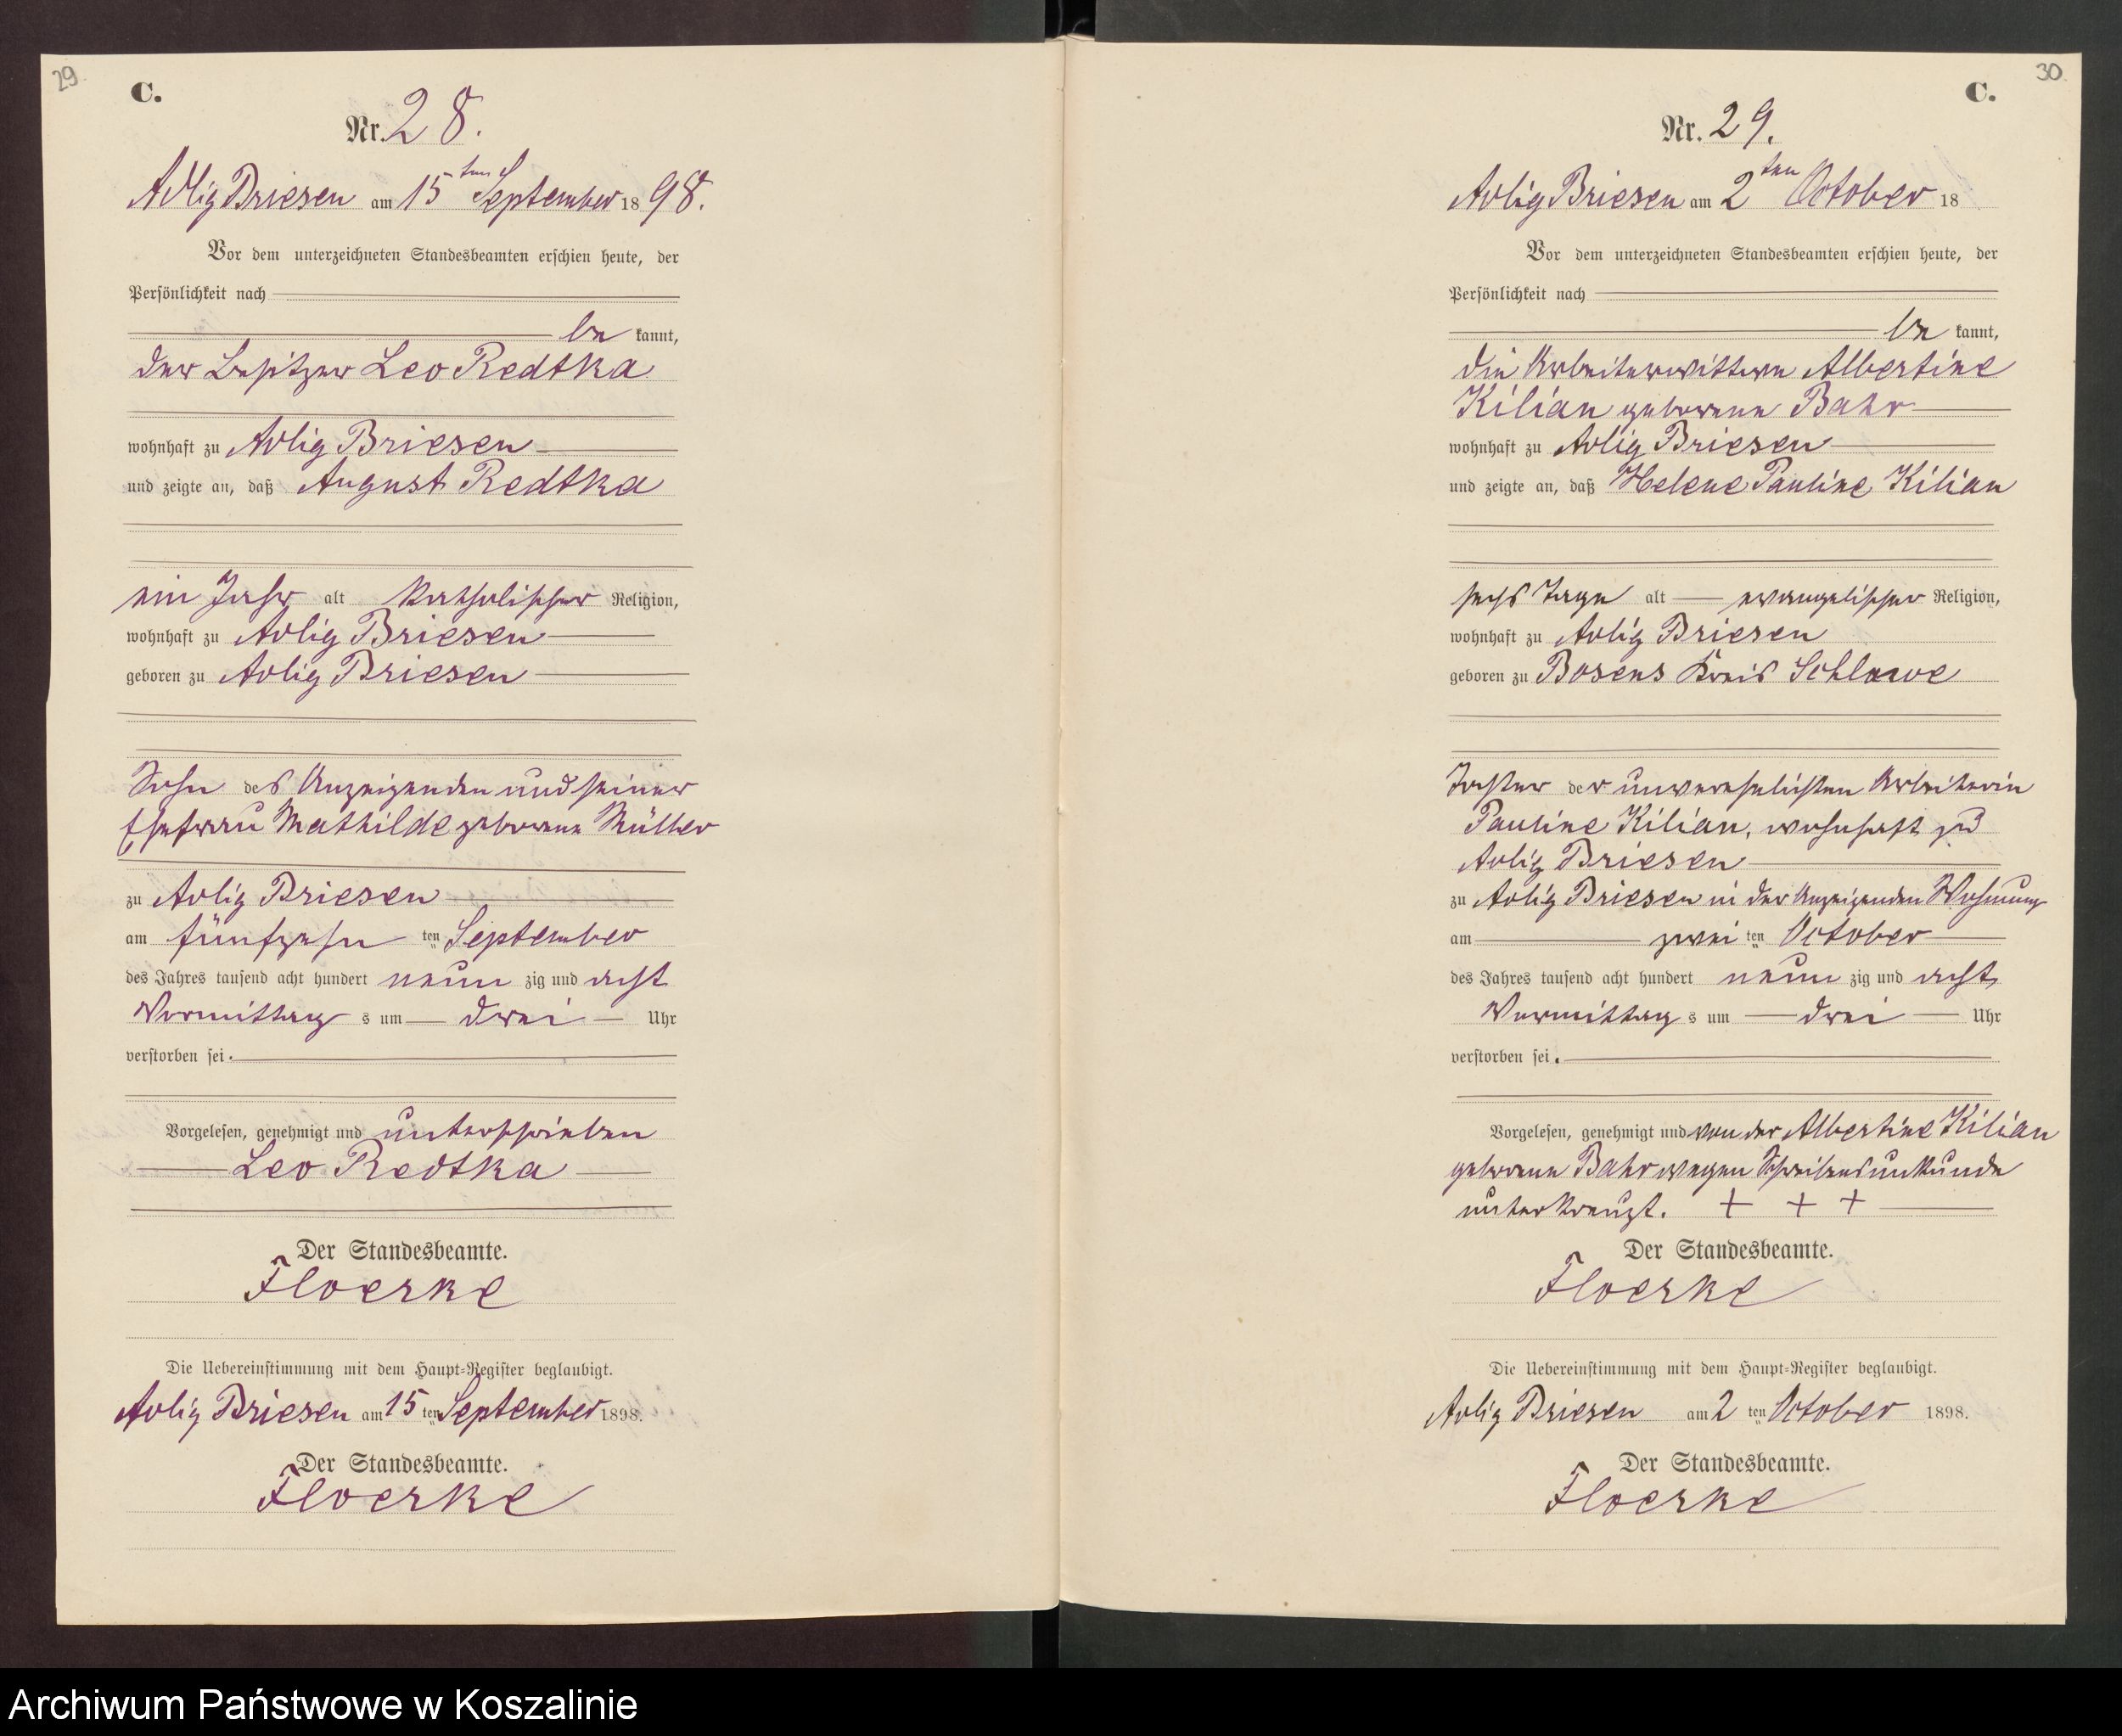 29
C.
Nr. 28.
Adlig Briesen am 15ten September 1898.
Vor dem unterzeichneten Standesbeamten erschien heute, der
Persönlichkeit nach
be kannt,
der Besitzer Leo Redtka
wohnhaft zu Adlig Briesen
und zeigte an, daß August Redtka
ein Jahr alt katholischer Religion,
wohnhaft zu Adlig Briesen
geboren zu Adlig Briesen
Sohn des Anzeigenden und seiner
Ehefrau Mathilde geborene Müller
zu Adlig Briesen
am fünfzehn ten September
des Jahres tausend acht hundert neun zig und acht
Vormittag s um drei Uhr
verstorben sei.
Vorgelesen, genehmigt und unterschrieben
Leo Redtka
Der Standesbeamte.
Floerke
Die Uebereinstimmung mit dem Haupt-Register beglaubigt.
Adlig Briesen am 15 ten September 1898.
Der Standesbeamte.
Floerke
30
C.
Nr. 29.
Adlig Briesen am 2ten October 18
Vor dem unterzeichneten Standesbeamten erschien heute, der
Persönlichkeit nach
be kannt,
die Arbeiterwittwe Albertine
Kilian geborene Bahr
wohnhaft zu Adlig Briesen
und zeigte an, daß Helene Pauline Kilian
sechs Tage alt evangelischer Religion,
wohnhaft zu Adlig Briesen
geboren zu Bosens Kreis Schlawe
Tochter der unverehelichten Arbeiterin
Pauline Kilian, wohnhaft zu
Adlig Briesen
zu Adlig Briesen in der Anzeigenden Wohnung
am zwei ten October
des Jahres tausend acht hundert neun zig und acht
Vormittag s um drei Uhr
verstorben sei.
Vorgelesen, genehmigt und von der Albertine Kilian
geborene Bahr wegen Schreibensunkunde
unterkreuzt. + + +
Der Standesbeamte.
Floerke
Die Uebereinstimmung mit dem Haupt-Register beglaubigt.
Adlig Briesen am 2 ten October 1898.
Der Standesbeamte.
Floerke
Archiwum Państwowe w Koszalinie